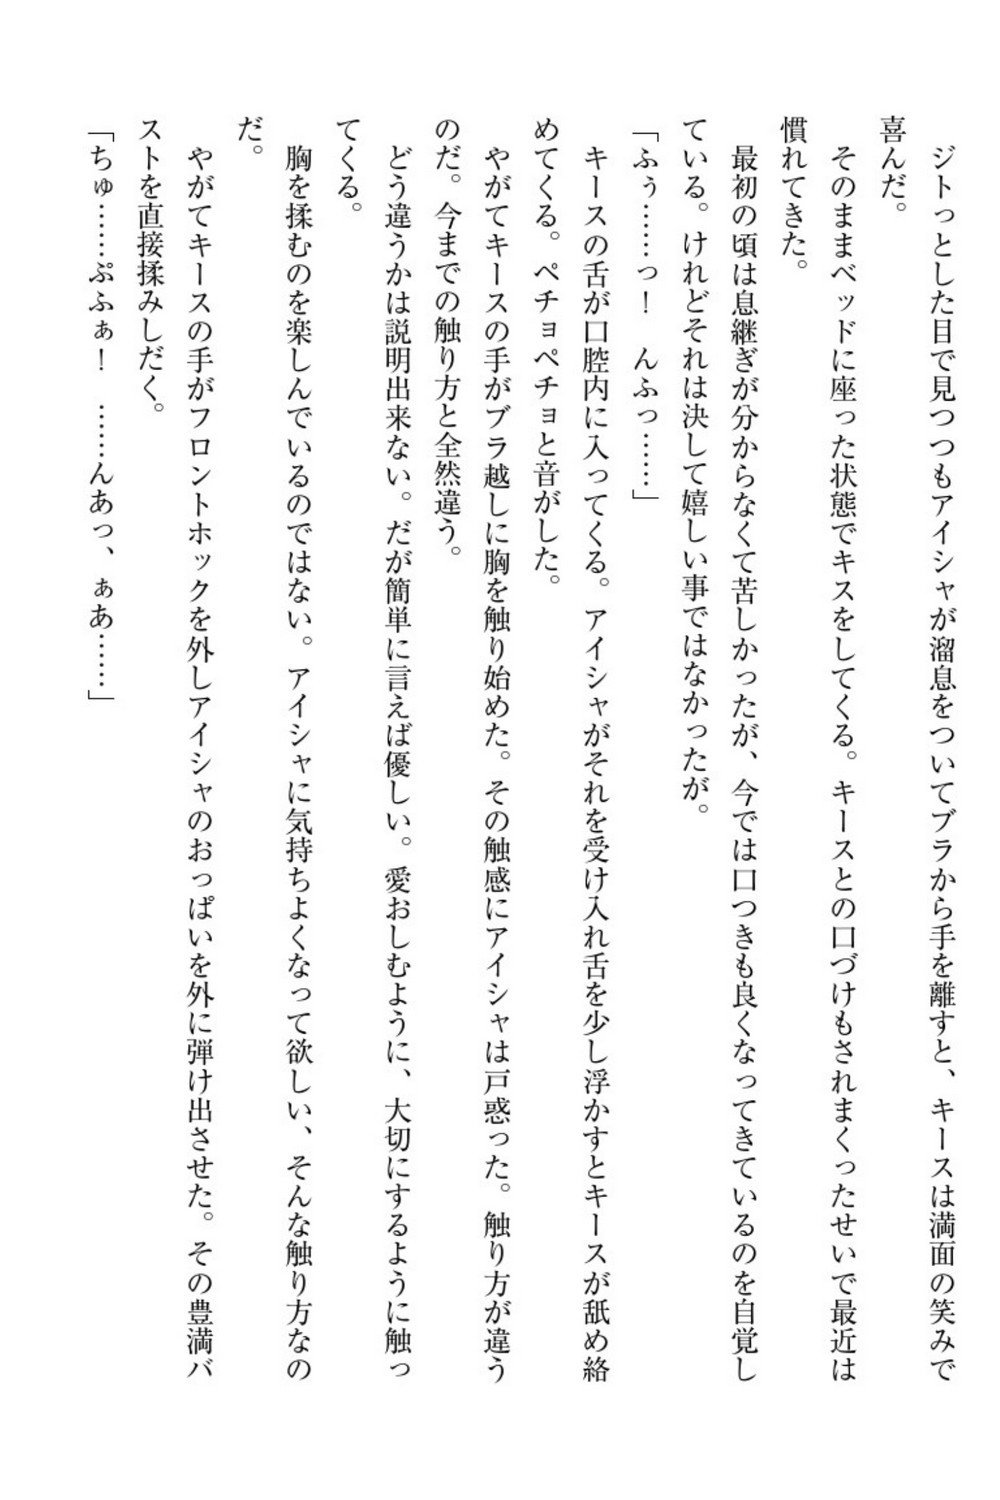 ジトっとした目で見つつもアイシャが溜息をついてブラから手を離すと、キースは満面の笑みで
喜んだ。
　そのままベッドに座った状態でキスをしてくる。キースとの口づけもされまくったせいで最近は
慣れてきた。
　最初の頃は息継ぎが分からなくて苦しかったが、今では口つきも良くなってきているのを自覚し
ている。けれどそれは決して嬉しい事ではなかったが。
「ふぅ……っ！　んふっ……」
　キースの舌が口腔内に入ってくる。アイシャがそれを受け入れ舌を少し浮かすとキースが舐め絡
めてくる。ペチョペチョと音がした。
　やがてキースの手がブラ越しに胸を触り始めた。その触感にアイシャは戸惑った。触り方が違う
のだ。今までの触り方と全然違う。
　どう違うかは説明出来ない。だが簡単に言えば優しい。愛おしむように、大切にするように触っ
てくる。
　胸を揉むのを楽しんでいるのではない。アイシャに気持ちよくなって欲しい、そんな触り方なの
だ。
　やがてキースの手がフロントホックを外しアイシャのおっぱいを外に弾け出させた。その豊満バ
ストを直接揉みしだく。
「ちゅ……ぷふぁ！　……んあっ、ぁあ……」